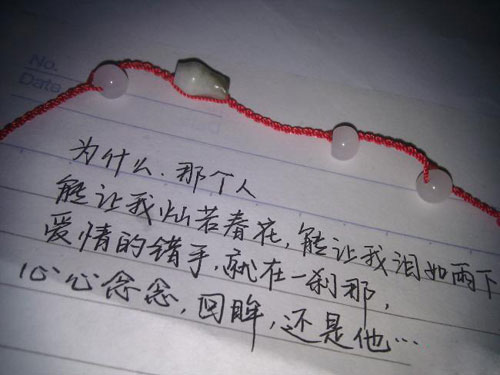 No.
Date
为什么.那个人
能让我灿若春花,能让我泪如雨下
爱情的错手,就在一刹那,
心心念念,回眸,还是他…